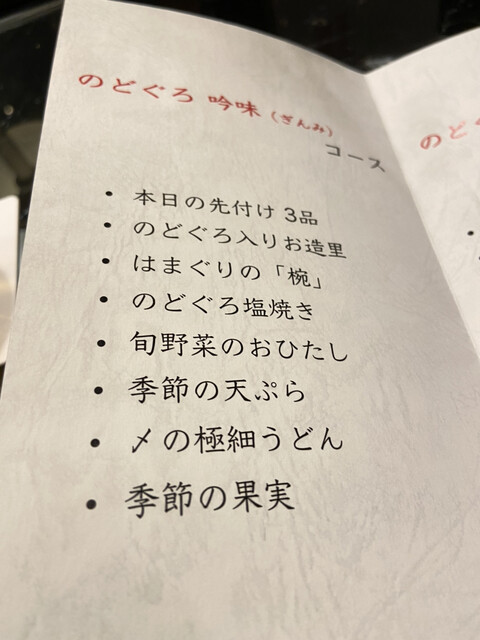 のどぐろ 吟味（ぎんみ）
コース
・本日の先付け 3品
・のどぐろ入りお造里
・はまぐりの「椀」
・のどぐろ塩焼き
・旬野菜のおひたし
・季節の天ぷら
・〆の極細うどん
・季節の果実
のど